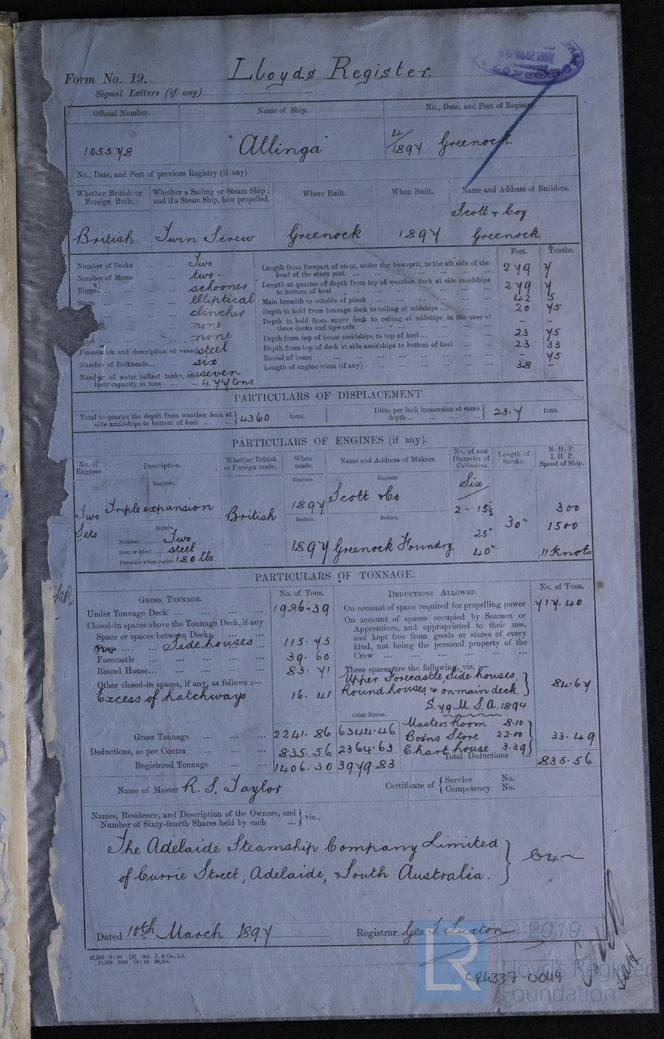 Form No. 19.
Lloyds Register.
Signal Letters (if any)
Official Number. Name of Ship. No., Date, and Port of Registry.
105548 "Allinga" 4/1897 Greenock.
No., Date, and Port of previous Registry (if any)
Whether British or Foreign Built. Whether a Sailing or Steam Ship; and if a Steam Ship, how propelled. Where Built. When Built. Name and Address of Builders.
British Twin Screw Greenock 1897 Scott & Coy Greenock.
Feet. Tenths.
Number of Decks Two
Number of Masts two
Rigged schooner
Stern elliptical
clincher
none
none
Framework and description of vessel steel
Number of Bulkheads six
Number of water ballast tanks, and seven
their capacity in tons 477 tons
Length from forepart of stem, under the bowsprit, to the aft side of the head of the stern post 279 7
Length at quarter of depth from top of weather deck at side amidships to bottom of keel 279 7
Main breadth to outside of plank 42 5
Depth in hold from tonnage deck to ceiling at midships 20 75
Depth in hold from upper deck to ceiling at midships, in the case of three decks and upwards -
Depth from top of beam amidships to top of keel 23 75
Depth from top of deck at side amidships to bottom of keel 23 33
Round of beam - 75
Length of engine room (if any) 38 -
PARTICULARS OF DISPLACEMENT.
Total to quarter the depth from weather deck at side amidships to bottom of keel 4360 tons. Ditto per inch immersion at same depth 23.7 tons.
PARTICULARS OF ENGINES (if any).
No. of Engines Description. Whether British or Foreign made. When made. Name and Address of Makers. No. of and Diameter of Cylinders. Length of Stroke. N. H. P. I. H. P. Speed of Ship.
Engines. Engines. Engines. Six
Two Sets Triple expansion British 1897 Scott & Co 2 - 15½ 30" 300
Boilers. Boilers. Boilers. 25" 1500
Number Two
Iron or steel steel 1897 Greenock Foundry. 40" 11 Knots
Pressure when loaded 180 lbs.
PARTICULARS OF TONNAGE.
GROSS TONNAGE. No. of Tons. DEDUCTIONS ALLOWED. No. of Tons.
Under Tonnage Deck 1986.39
Closed-in spaces above the Tonnage Deck, if any
Space or spaces between Decks
Side houses 115.75
Forecastle 39.60
Round House 83.71
Other closed-in spaces, if any, as follows:—
Excess of hatchways 16.41
Cubic Metres.
Gross Tonnage 2241.86 6344.46
Deductions, as per Contra 835.56 2364.63
Registered Tonnage 1406.30 3979.83
On account of space required for propelling power 717.40
On account of spaces occupied by Seamen or Apprentices, and appropriated to their use, and kept free from goods or stores of every kind, not being the personal property of the Crew
These spaces are the following, viz.
Upper Forecastle, Side houses,
Round houses & on main deck. 84.67
S.79 M.S.A. 1894
Masters Room 8.10
Bosns Store 22.00 33.49
Chart house 3.39
Total Deductions 835.56
Name of Master R. S. Taylor Certificate of Service No.
Competency No.
Names, Residence, and Description of the Owners, and Number of Sixty-fourth Shares held by each viz.,
The Adelaide Steamship Company Limited
of Currie Street, Adelaide, South Australia. 64
Dated 10th March 1897 Registrar Geo. S. Luxton
© 2019
LR
Lloyd's Register
Foundation
0049